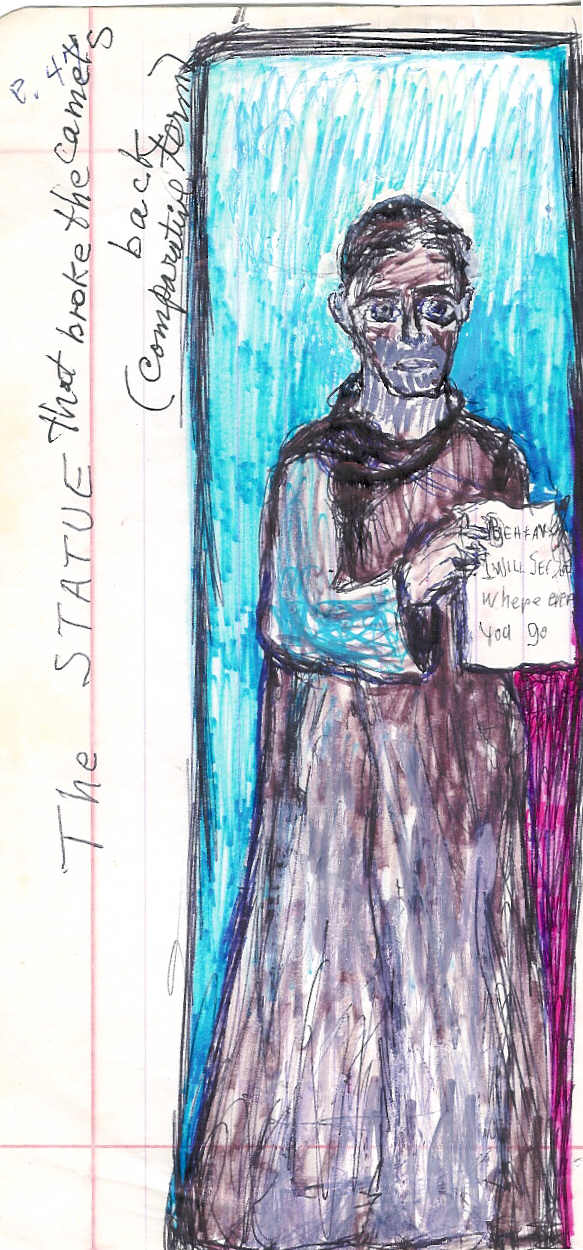 The STATUE that broke the camels
back
(comparative term)
I WILL
where ever
you go